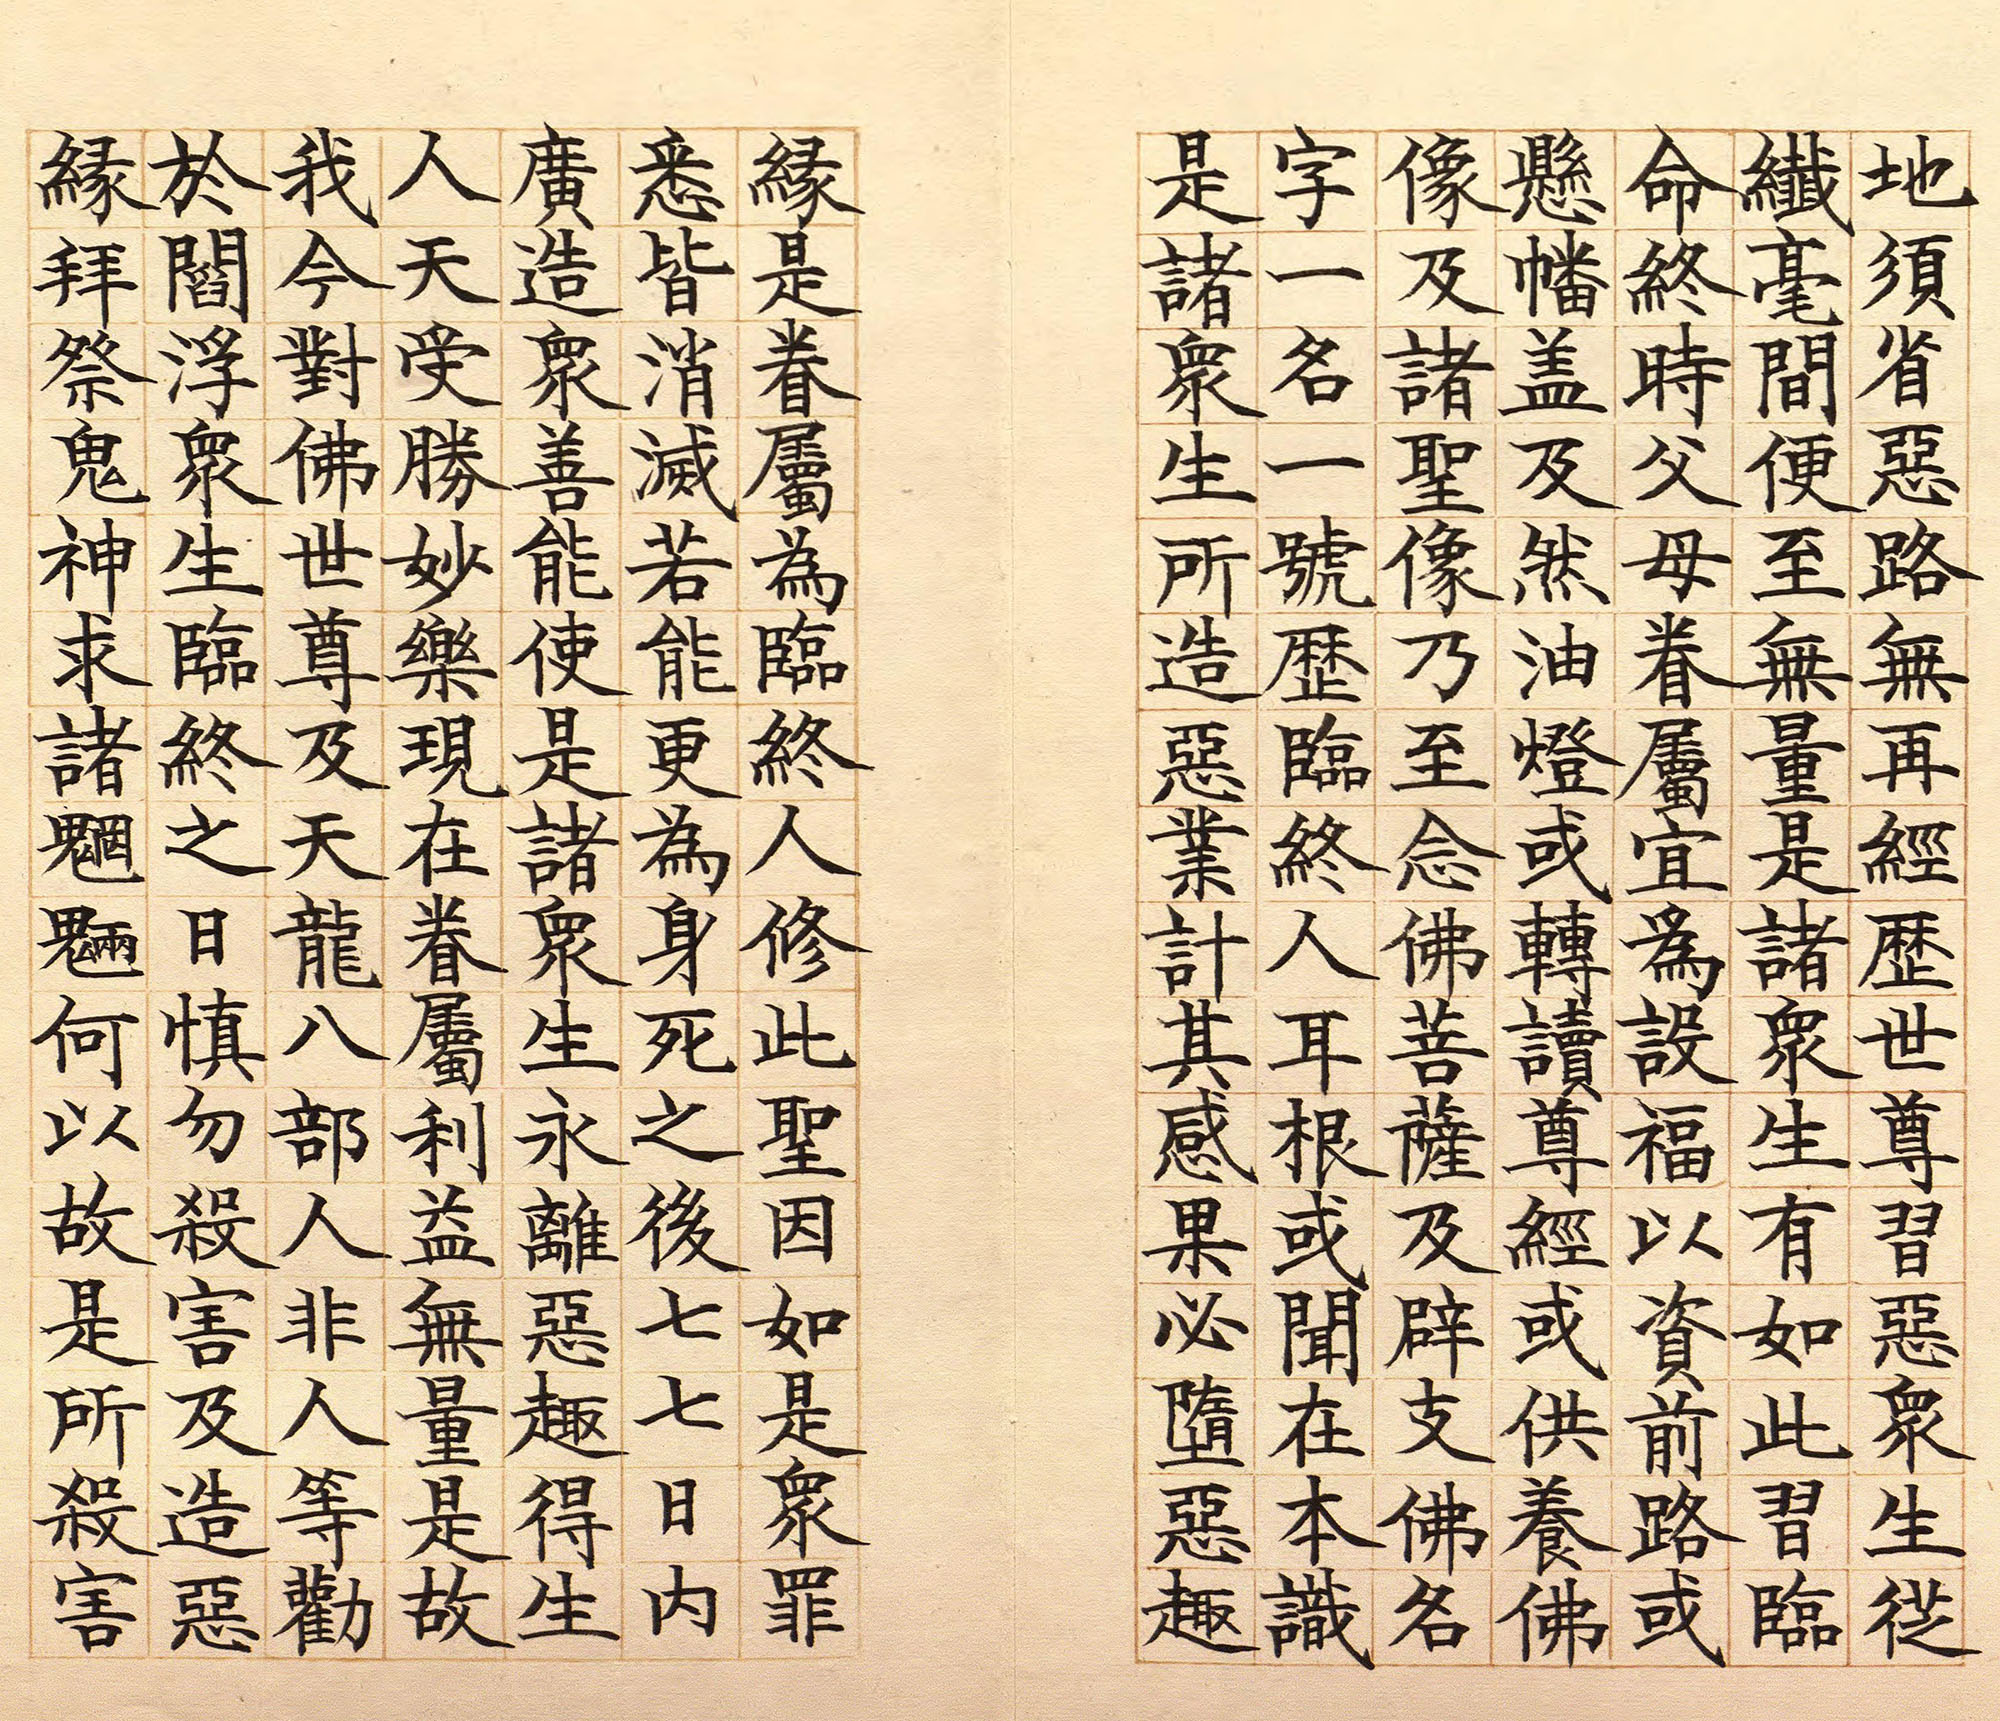 地須省惡路無再經歷世尊習惡衆生従
纖毫間便至無量是諸衆生有如此習臨
命終時父母眷屬宜爲設福以資前路或
懸幡盖及然油燈或轉讀尊經或供養佛
像及諸聖像乃至念佛菩薩及辟支佛名
字一名一號歷臨終人耳根或聞在本識
是諸衆生所造惡業計其感果必墮惡趣
縁是眷屬為臨終人修此聖因如是衆罪
悉皆消滅若能更為身死之後七七日内
廣造衆善能使是諸衆生永離惡趣得生
人天受勝妙樂現在眷屬利益無量是故
我今對佛世尊及天龍八部人非人等勸
於閻浮衆生臨終之日慎勿殺害及造惡
縁拜祭鬼神求諸魍魎何以故是所殺害